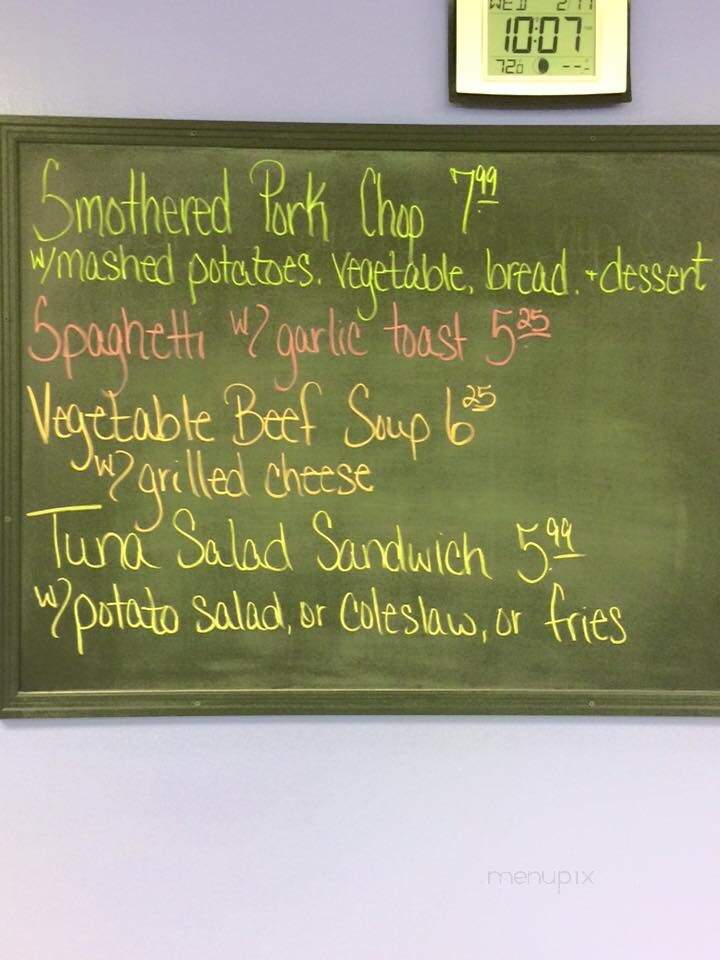 WED 2/17
10:07
72.0 --.-
Smothered Pork Chop 7.99
w/mashed potatoes. vegetable, bread. + dessert
Spaghetti w/ garlic toast 5.25
Vegetable Beef Soup 6.25
w/ grilled cheese
Tuna Salad Sandwich 5.99
w/potato salad, or coleslaw, or fries
menupix